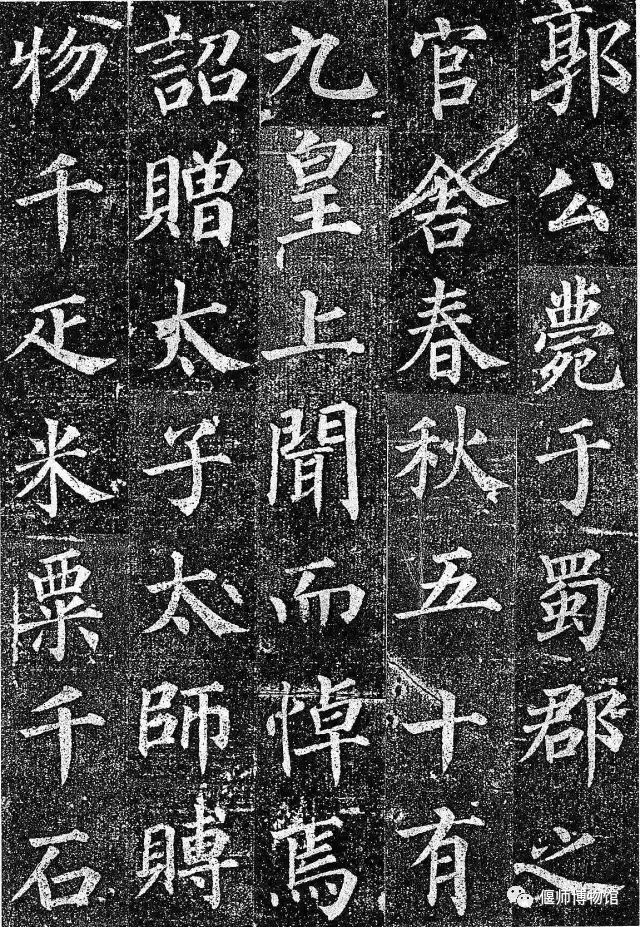 郭公薨于蜀郡之
官舍春秋五十有
九皇上聞而悼焉
詔贈太子太師賻
物千疋米粟千石
偃师博物馆